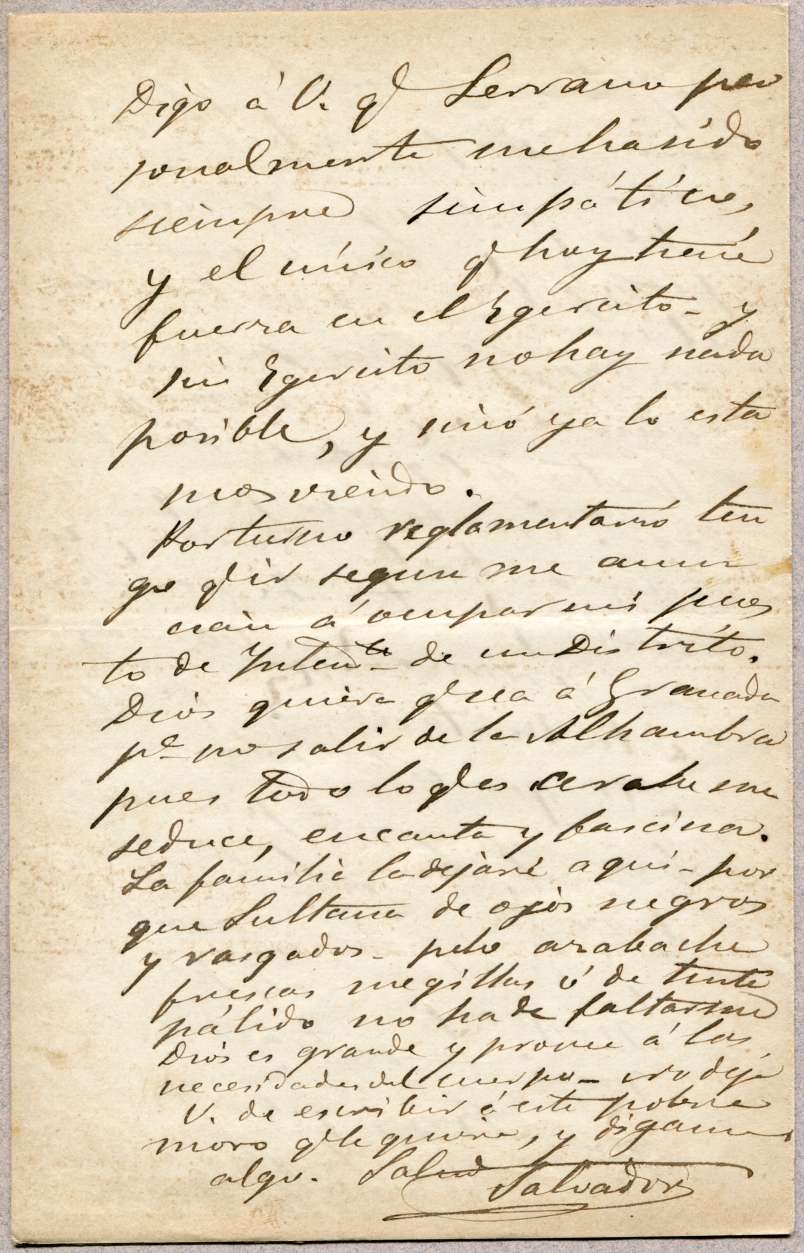 Digo á V. q̃ Serrano per
sonalmente me ha sido
siempre simpático,
y el único q̃ hoy tiene
fuerza en el Egercito - y
sin Egercito no hay nada
posible, y sinó ya lo esta
mos viendo.
Por turno reglamentario ten
go q̃ ir segun me anun
cian á ocupar mi pues
to de Intend.te de un Distrito.
Dios quiera q̃ sea á Granada
p.a no salir de la Alhambra
pues todo lo q̃ es arabe me
seduce, encanta y fascina.
La familia la dejaré aqui - por
que Sultana de ojos negros
y rasgados - pelo azabache
frescas megillas ó de tinte
pálido no ha de faltarme
Dios es grande y provee á las
necesidades del cuerpo - no deje
V. de escribir á este pobre
moro q̃ le quiere, y digame
algo. Salud
Salvador